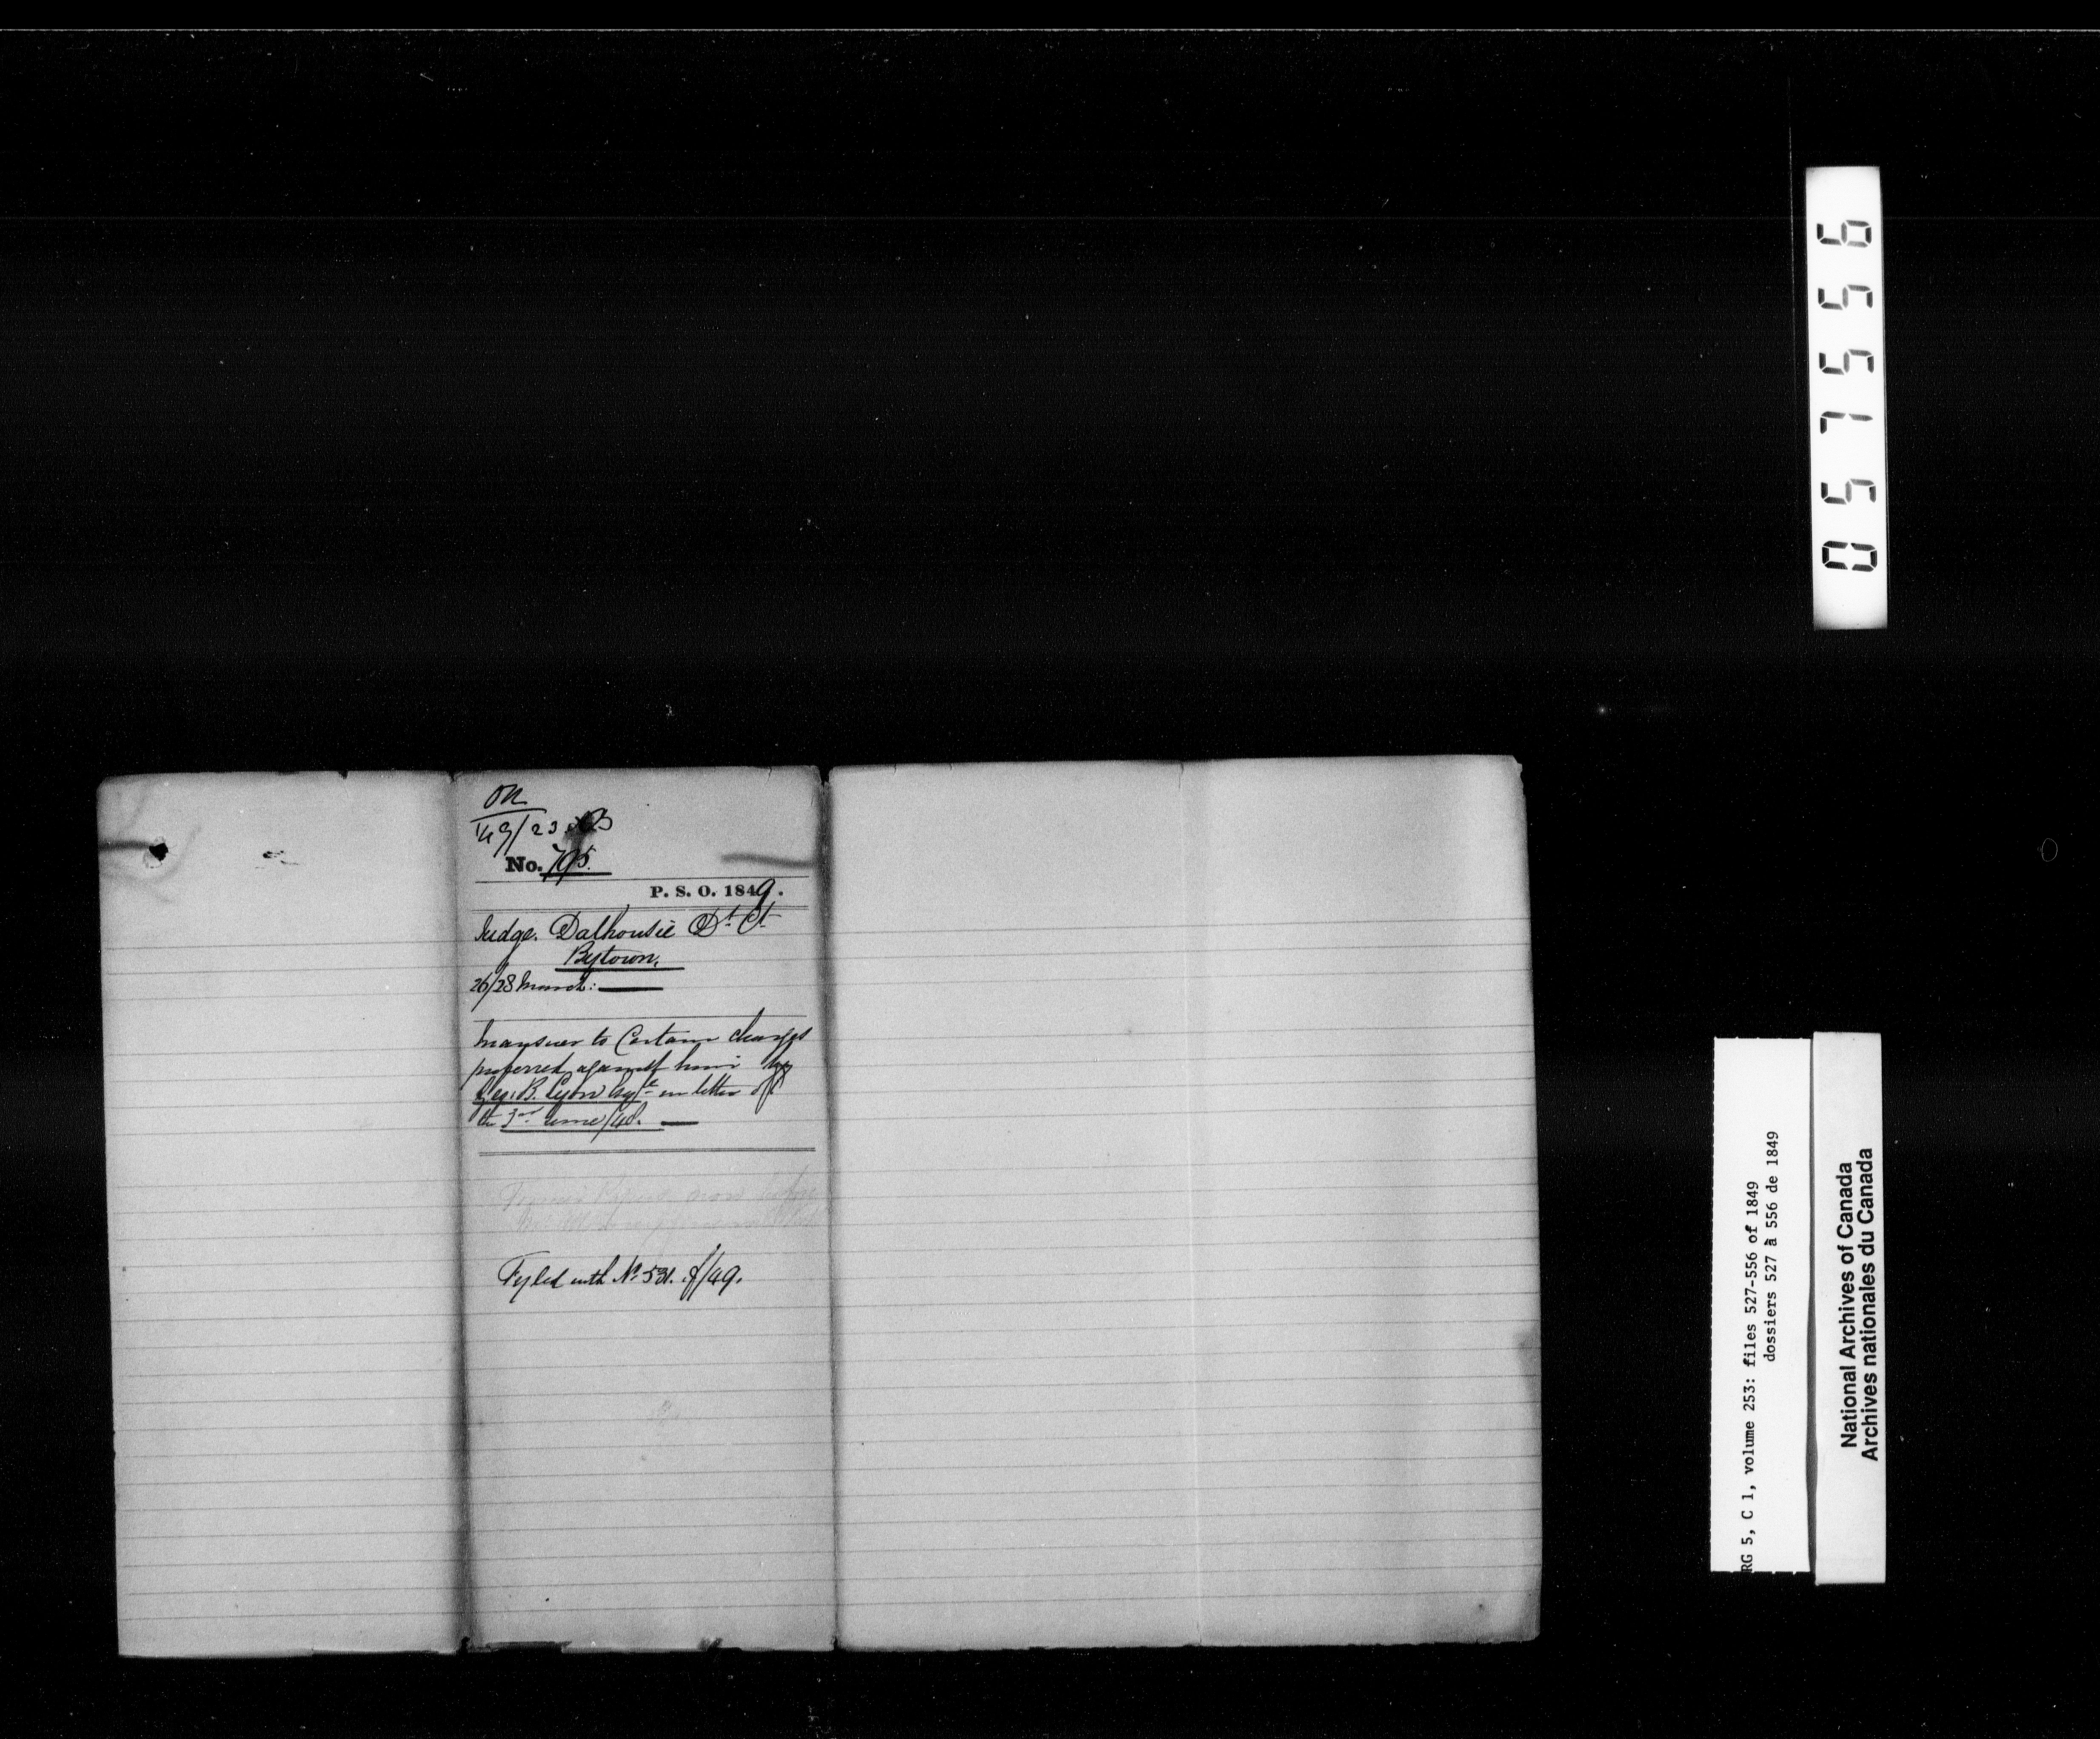 No. 705.
P. S. O. 1849.
Judge. Dalhousie Dt. Ct
Bytown.
26/28 March:
In answer to Certain charges
preferred against him by
Geo. B. Lyon Esqre in letter of
the 3rd June/48.
Fyled with No. 531. of/49.
057556
RG 5, C 1, volume 253: files 527-556 of 1849
dossiers 527 à 556 de 1849
National Archives of Canada
Archives nationales du Canada